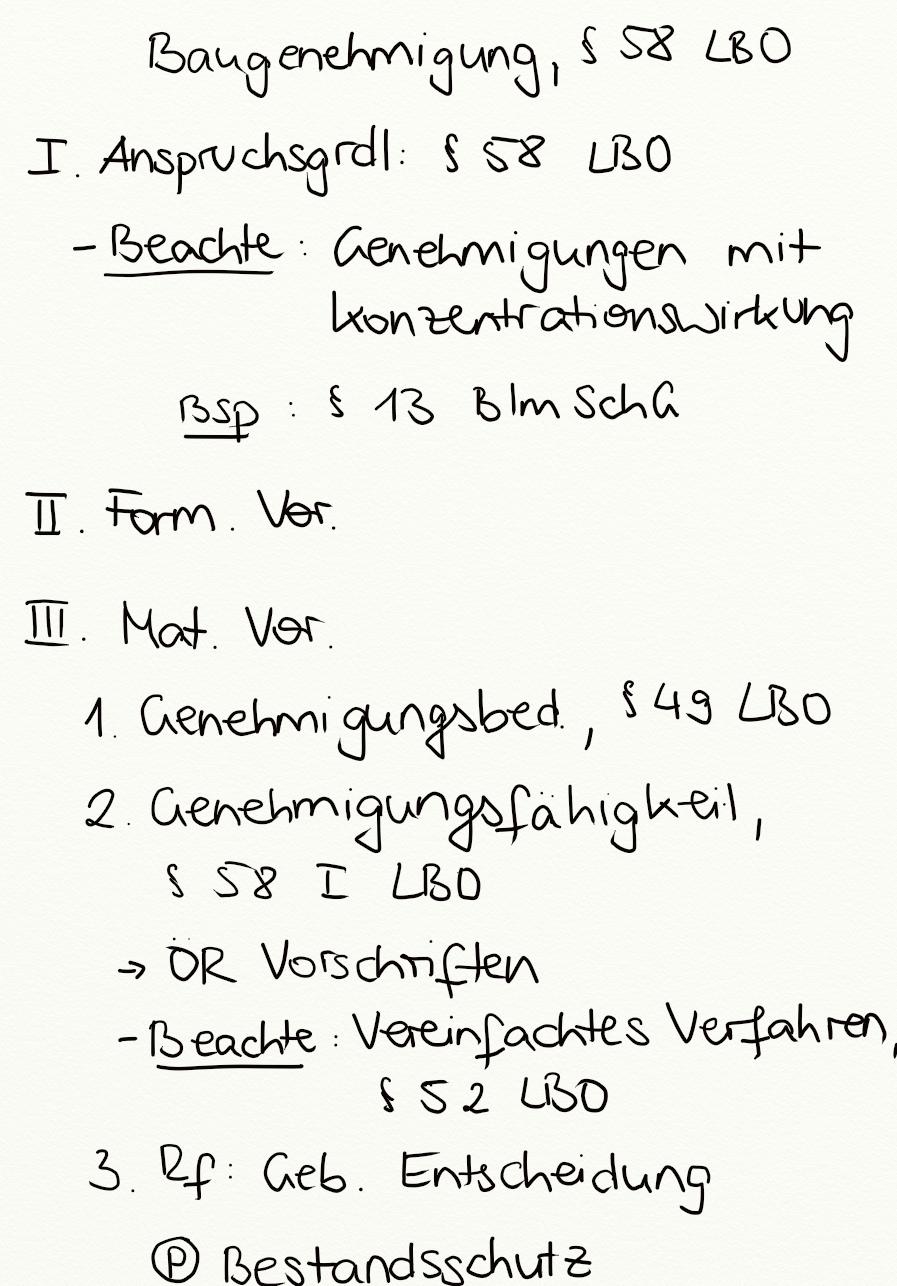 Baugenehmigung, § 58 LBO
I. Anspruchsgrdl: § 58 LBO
- Beachte: Genehmigungen mit
Konzentrationswirkung
Bsp: § 13 BImSchG
II. Form. Vor.
III. Mat. Vor.
1. Genehmigungsbed., § 49 LBO
2. Genehmigungsfähigkeit,
§ 58 I LBO
→ ÖR Vorschriften
- Beachte: Vereinfachtes Verfahren,
§ 52 LBO
3. Rf: Geb. Entscheidung
Ⓟ Bestandsschutz